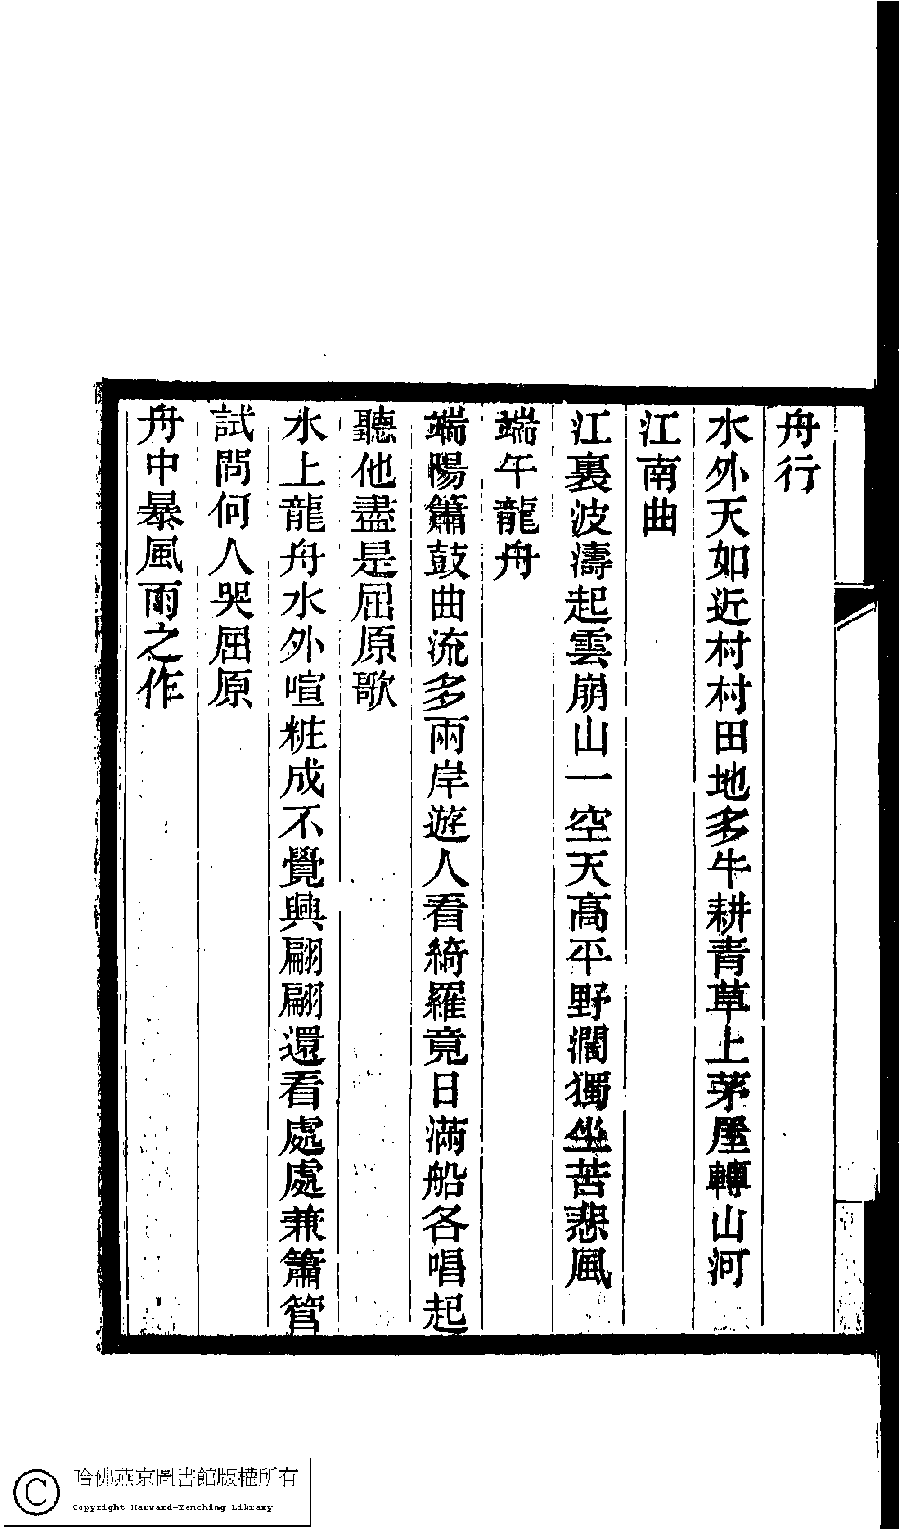 舟行
水外天如近村村田地多牛耕青草上茅屋轉山河
江南曲
江裏波濤起雲崩山一空天高平野濶獨坐苦悲風
端午龍舟
端陽簫鼓曲流多兩岸遊人看綺羅竟日滿船各唱起
聽他盡是屈原歌
水上龍舟水外喧粧成不覺興翩翩還看處處兼簫管
試問何人哭屈原
舟中暴風雨之作
哈佛燕京圖書館版權所有
Copyright Harvard-Yenching Library